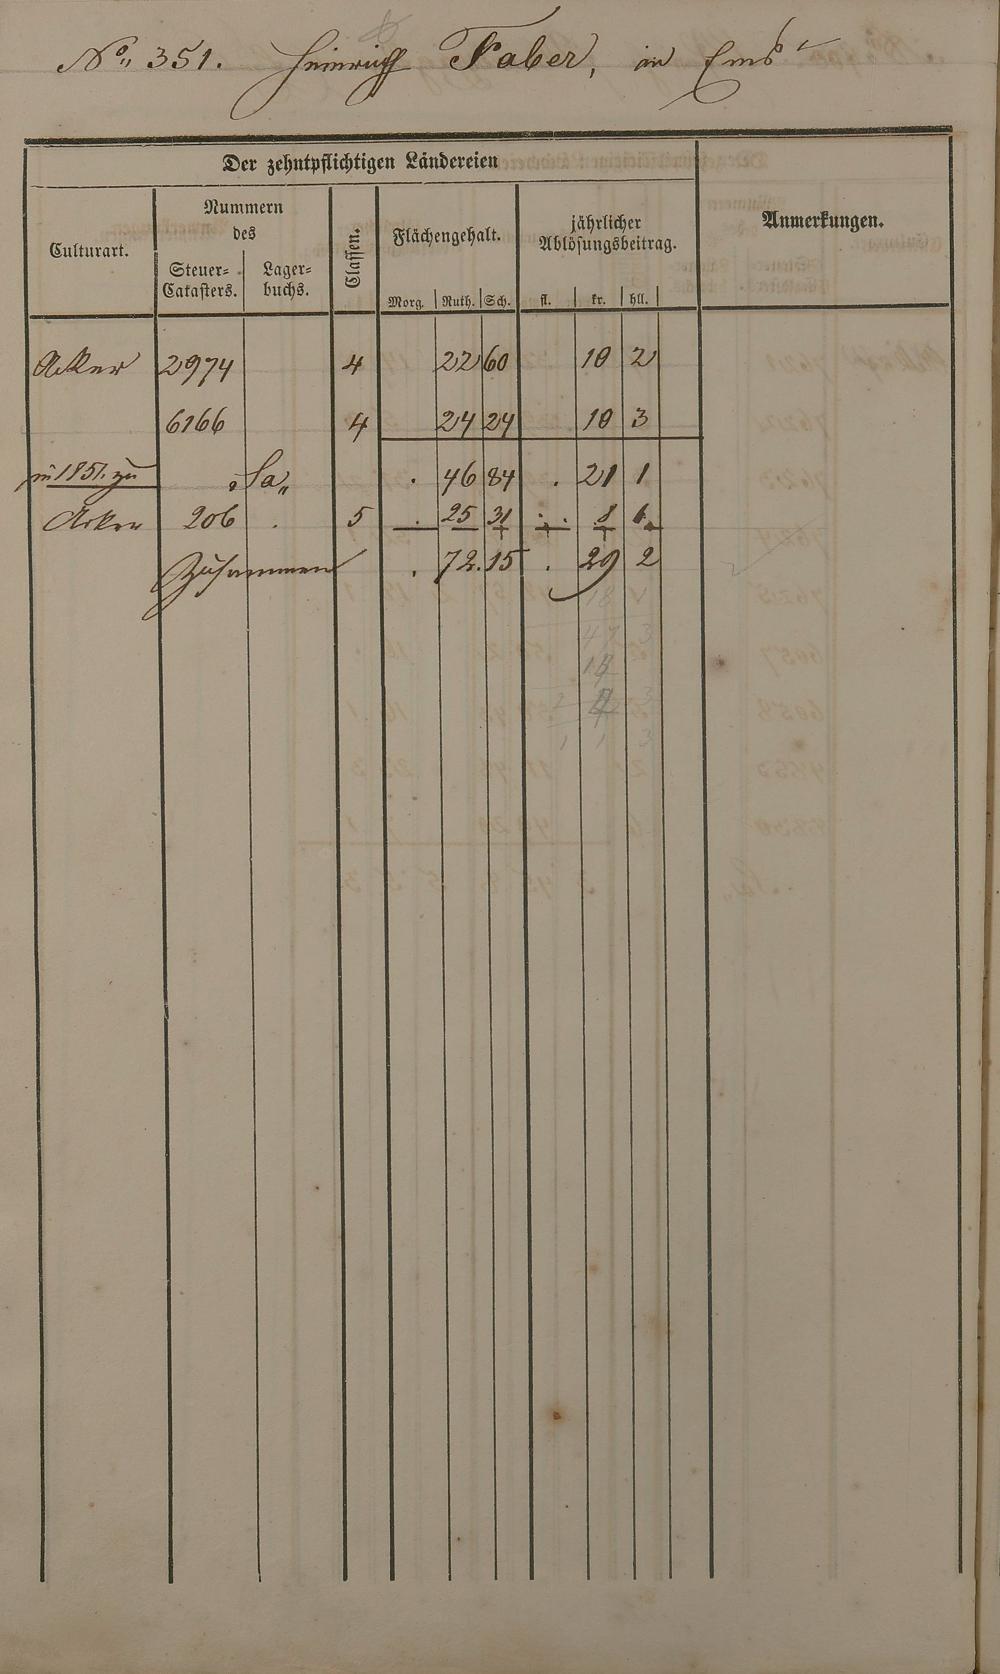 No. 351. Heinrich Faber, in Ems
Der zehntpflichtigen Ländereien
Culturart.
Nummern
des
Steuer=
Catasters.
Lager=
buchs.
Classen.
Flächengehalt.
Morg. Ruth. Sch.
jährlicher
Ablösungsbeitrag.
fl. kr. hll.
Anmerkungen.
Acker 2974 4 22 60 10 2
6166 4 24 24 10 3
in 1851. zu Sa. . 46 84 . 21 1
Acker 206 . 5 . 25 31 . 8 1
Zusammen . 72. 15 . 29 2
18 2
47 3